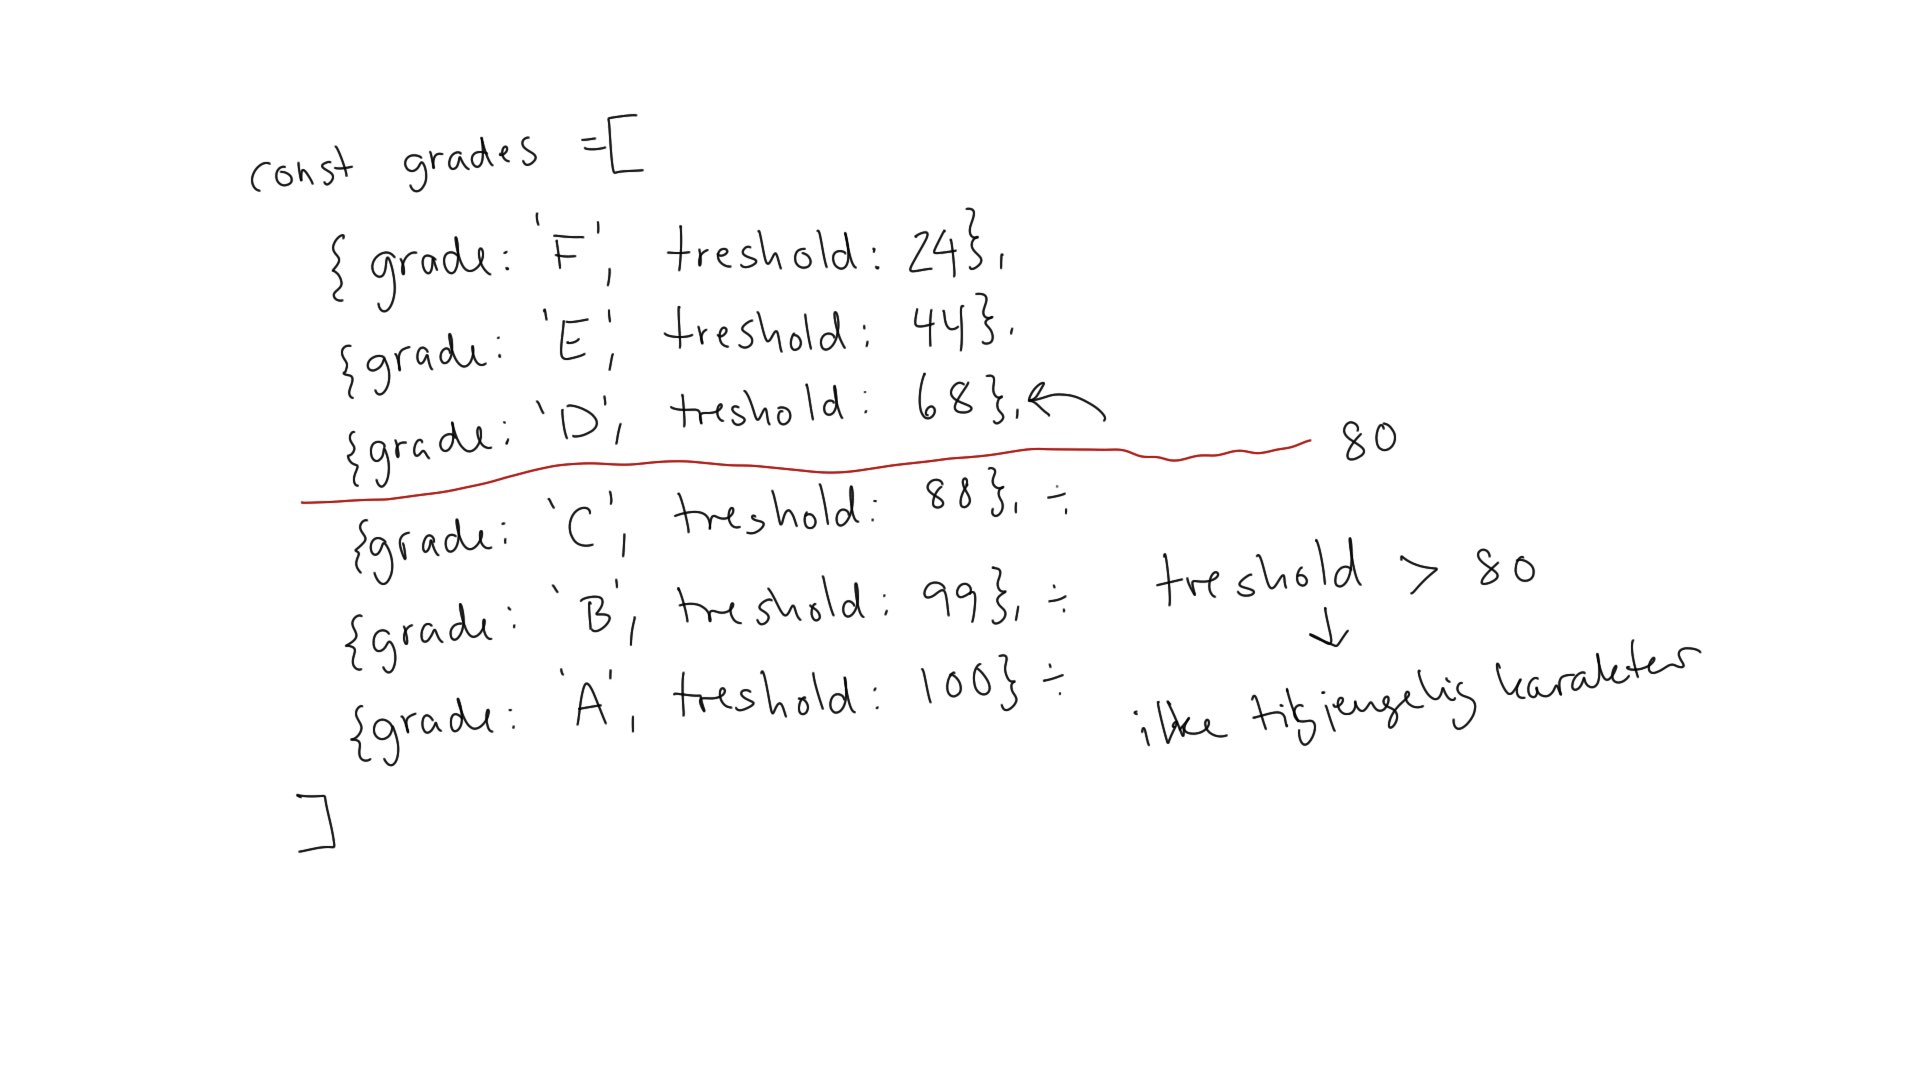 const grades =[
{ grade: 'F', treshold: 24},
{grade: 'E', treshold: 44},
{grade: 'D', treshold: 68},
80
{grade: 'C', treshold: 88}, ÷
{grade: 'B', treshold: 99}, ÷
{grade: 'A', treshold: 100} ÷
]
treshold > 80
↓
ikke tilgjengelig karakter